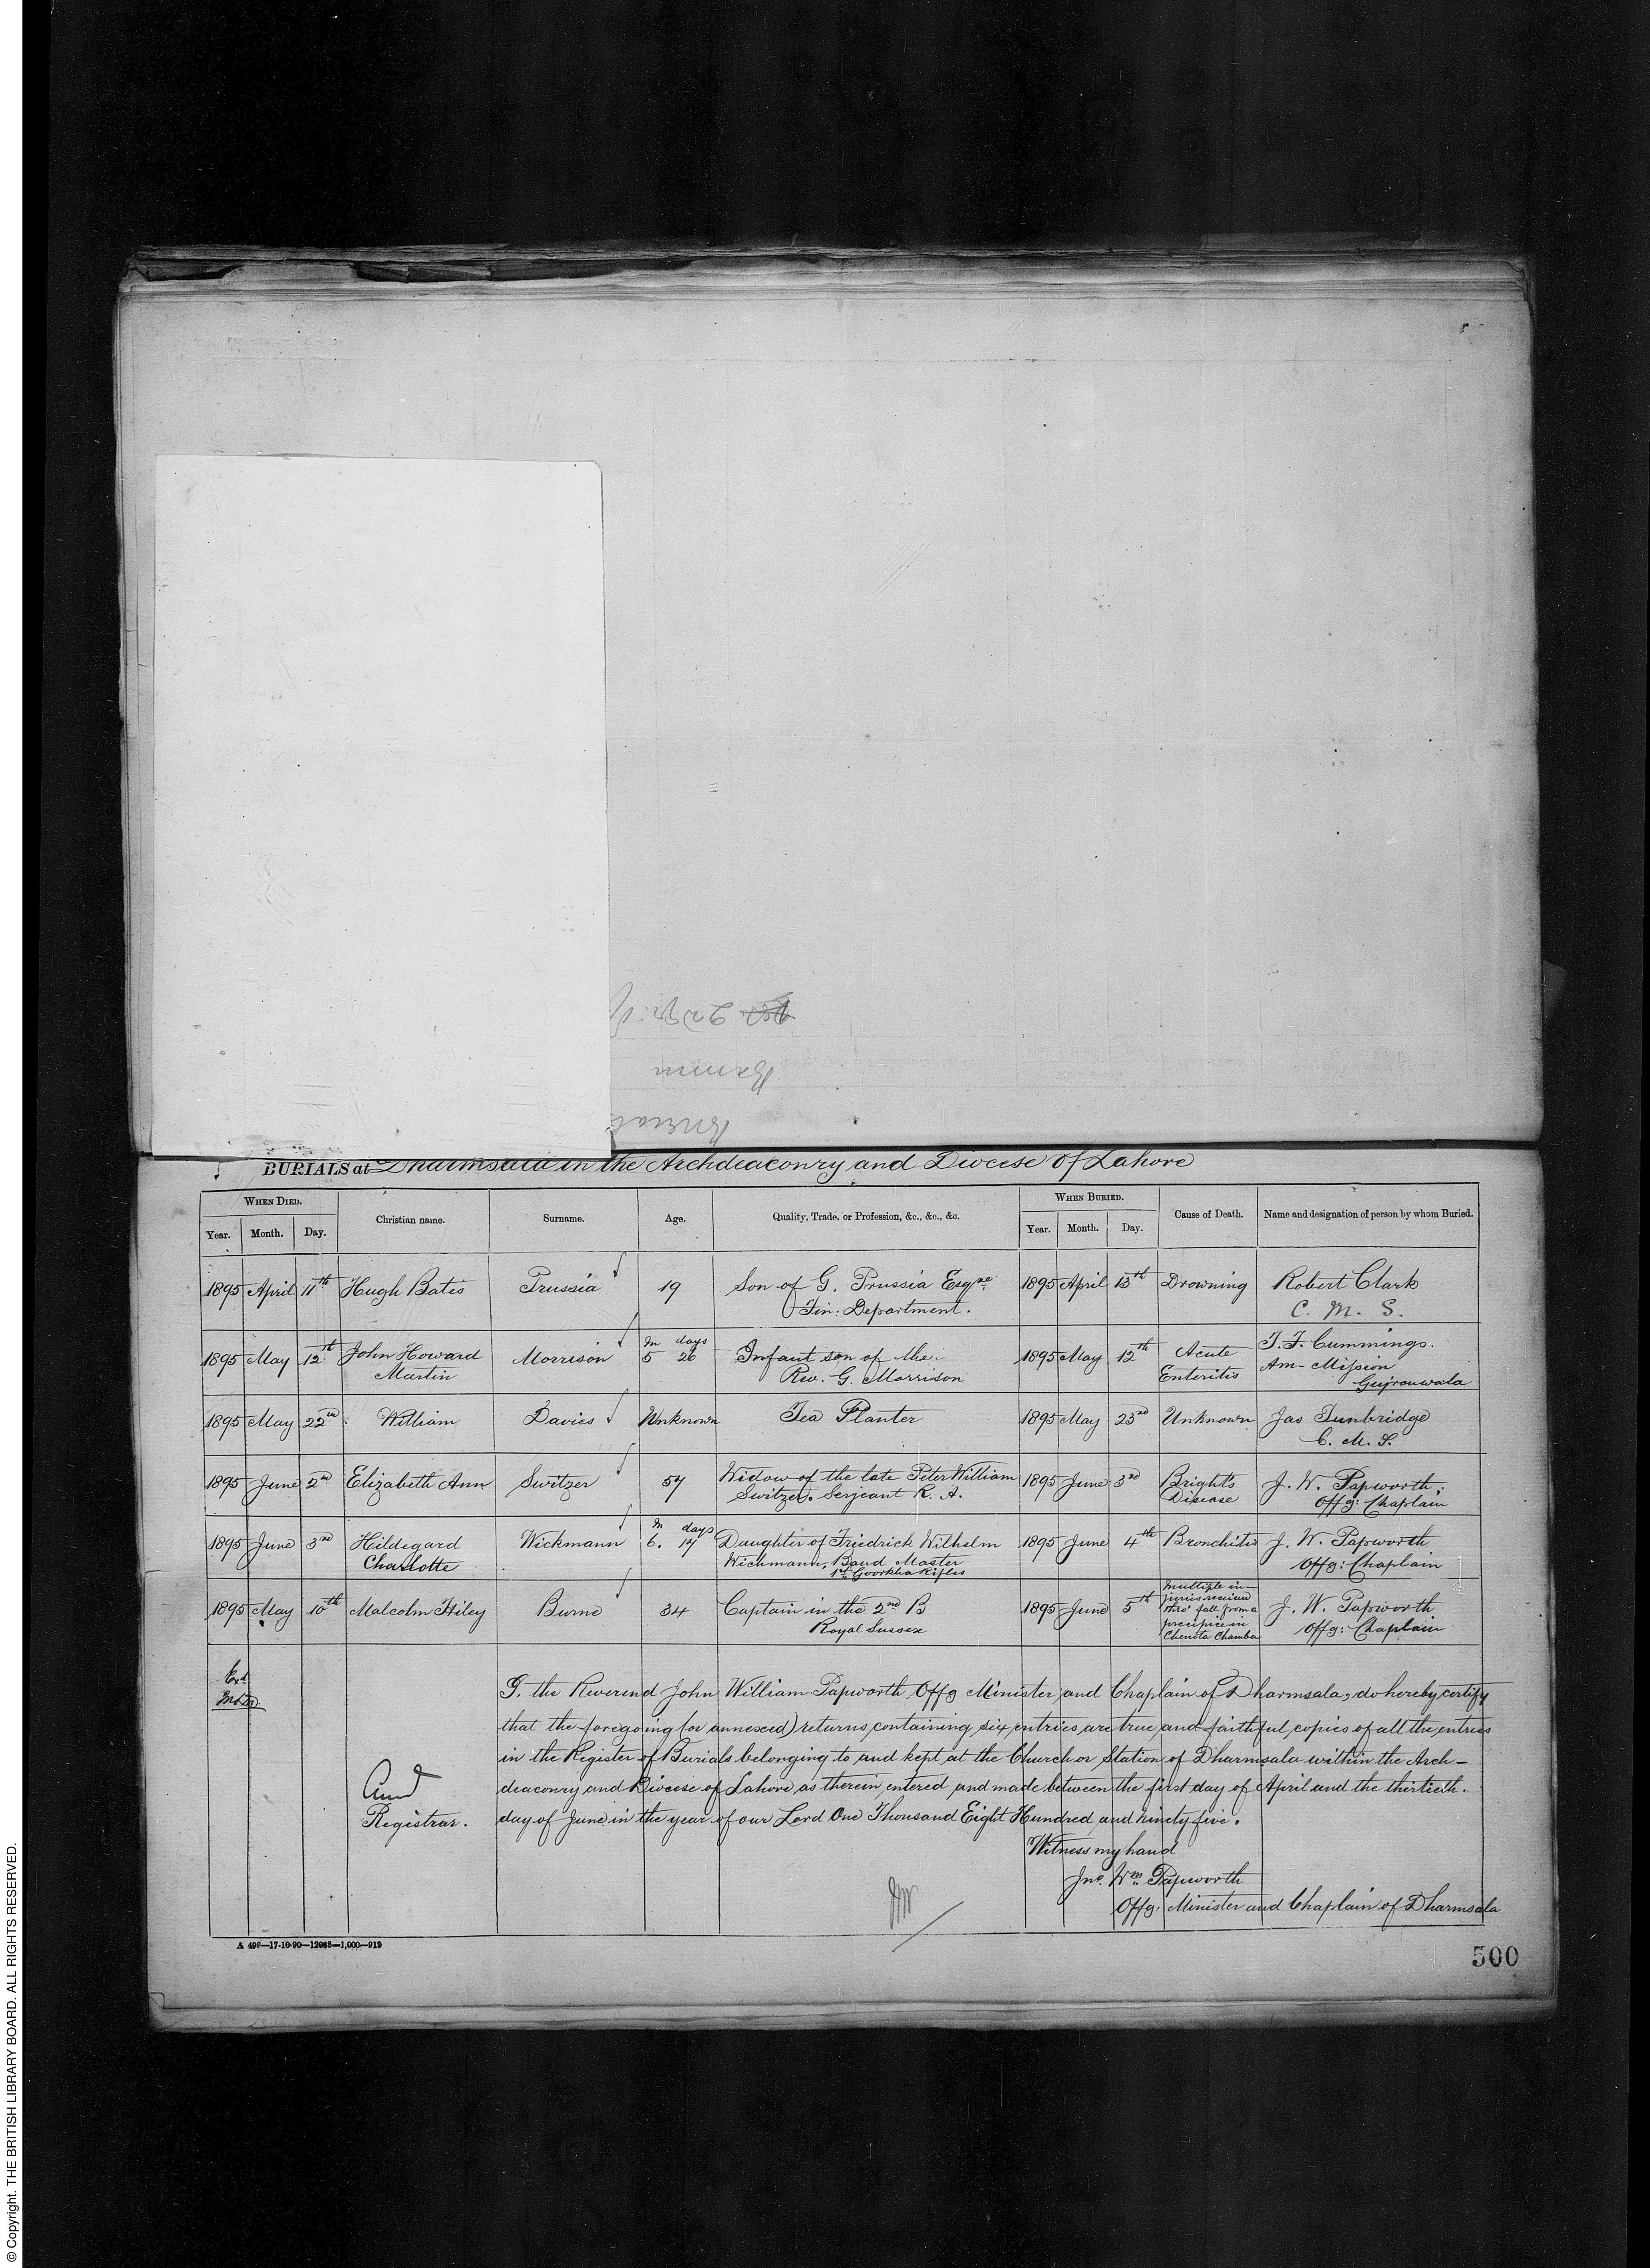 BURIALS at Dharmsala in the Archdeaconry and Diocese of Lahore
WHEN DIED. Christian name. Surname. Age. Quality, Trade, or Profession, &c., &c., &c. WHEN BURIED. Cause of Death. Name and designation of person by whom Buried.
Year. Month. Day. Year. Month. Day.
1895 April 11th Hugh Bates Prussia 19 Son of G. Prussia Esqre 1895 April 13th Drowning Robert Clark
Fin: Department. C. M. S.
M days
1895 May 12th John Howard Morrison 5 26 Infant son of the 1895 May 12th Acute T. F. Cummings.
Martin Rev. G. Morrison Enteritis Am- Mission
Gujranwala
1895 May 22nd William Davies Unknown Tea Planter 1895 May 23rd Unknown Jas Tunbridge
C. M. S.
1895 June 2nd Elizabeth Ann Switzer 57 Widow of the late Peter William 1895 June 3rd Bright's J. W. Papworth
Switzer. Serjeant R. A. Disease Offg: Chaplain
M days
1895 June 3rd Hildegard Wickmann 6. 17 Daughter of Friedrick Wilhelm 1895 June 4th Bronchitis J. W. Papworth
Charlotte Wichmann, Band Master Offg: Chaplain
1st Goorkha Rifles
1895 May 10th Malcolm Hiley Burne 34 Captain in the 2nd B 1895 June 5th Multiple in- J. W. Papworth
Royal Sussex juries received Offg: Chaplain
thro' fall from a
precipice in
Chenota Chamba
I, the Reverend John William Papworth Offg Minister and Chaplain of Dharmsala, do hereby certify
that the foregoing (or annexed) returns, containing six entries, are true and faithful copies of all the entries
in the Register of Burials belonging to and kept at the Church or Station of Dharmsala within the Arch-
deaconry and Diocese of Lahore, as therein entered and made between the first day of April and the thirtieth
day of June in the year of our Lord One Thousand Eight Hundred and ninety five.
Registrar.
Witness my hand
Jno. Wm. Papworth
Offg: Minister and Chaplain of Dharmsala
A 498—17-10-90—12068—1,000—913
500
© Copyright. THE BRITISH LIBRARY BOARD. ALL RIGHTS RESERVED.